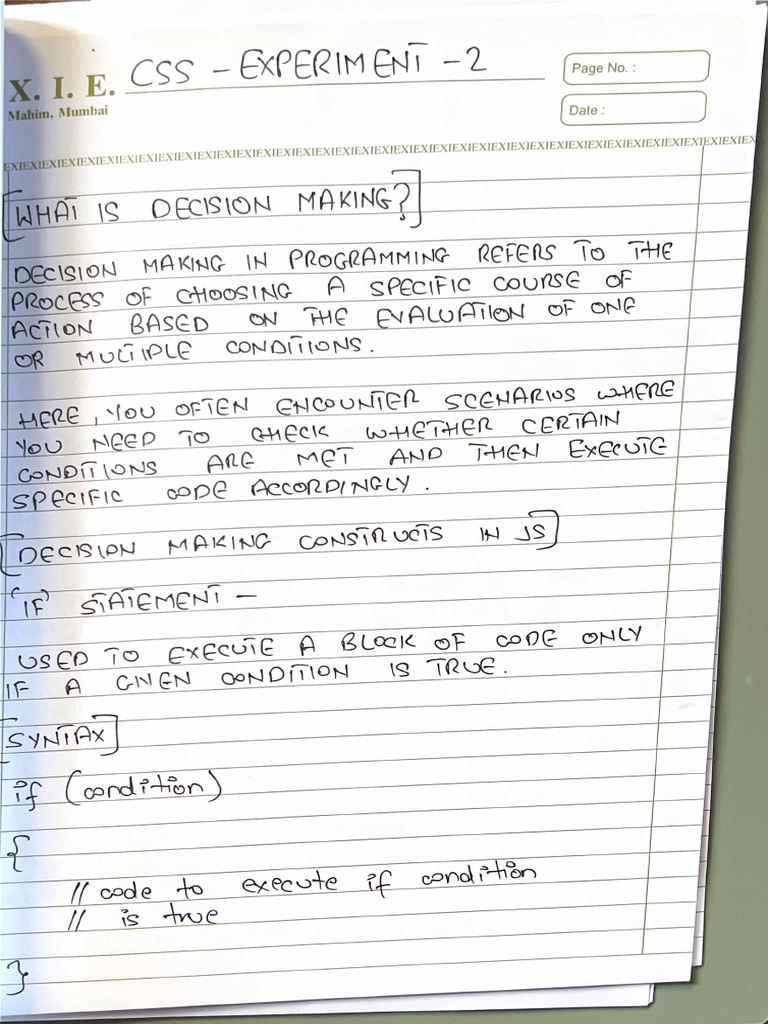 X. I. E. CSS - EXPERIMENT - 2
Mahim, Mumbai
Page No. :
Date :
EXIEXIEXIEXIEXIEXIEXIEXIEXIEXIEXIEXIEXIEXIEXIEXIEXIEXIEXIEXIEXIEXIEXIEXIEXIEXIEXIEXIEXIEXIEXIEXIEXIEXIEX
[WHAT IS DECISION MAKING?]
DECISION MAKING IN PROGRAMMING REFERS TO THE
PROCESS OF CHOOSING A SPECIFIC COURSE OF
ACTION BASED ON THE EVALUATION OF ONE
OR MULTIPLE CONDITIONS.
HERE, YOU OFTEN ENCOUNTER SCENARIOS WHERE
YOU NEED TO CHECK WHETHER CERTAIN
CONDITIONS ARE MET AND THEN EXECUTE
SPECIFIC CODE ACCORDINGLY.
[DECISION MAKING CONSTRUCTS IN JS]
'IF' STATEMENT -
USED TO EXECUTE A BLOCK OF CODE ONLY
IF A GIVEN CONDITION IS TRUE.
[SYNTAX]
if (condition)
{
// code to execute if condition
// is true
}